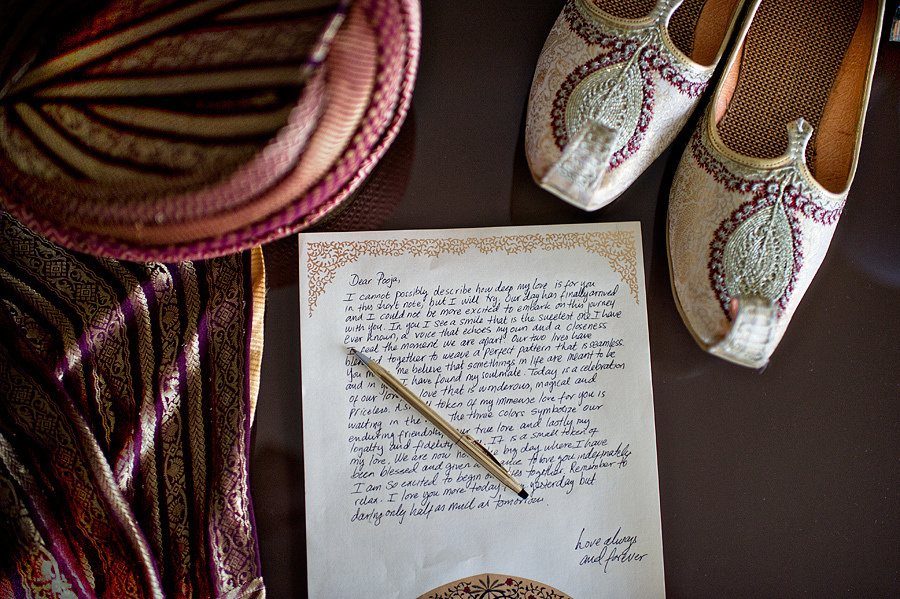 Dear Pooja,
I cannot possibly describe how deep my love is for you
in this short note, but I will try. Our day has finally arrived
and I could not be more excited to embark on this journey
with you. In you I see a smile that is the sweetest one I have
ever known, a voice that echoes my own and a closeness
I feel the moment we are apart. Our two lives have
together to weave a perfect pattern that is seamless.
You me believe that somethings in life are meant to be
and in you I have found my soulmate. Today is a celebration
of our love a love that is wonderous, magical and
priceless. A small token of my immense love for you is
waiting in the The three colors symbolize our
enduring friendship, our true love and lastly my
loyalty and fidelity It is a small token of
my love. We are now here big day where I have
been blessed and given a to love you indefinately
I am so excited to begin our together. Remember to
relax. I love you more today yesterday but
darling only half as much as tomorrow.
Love always
and forever